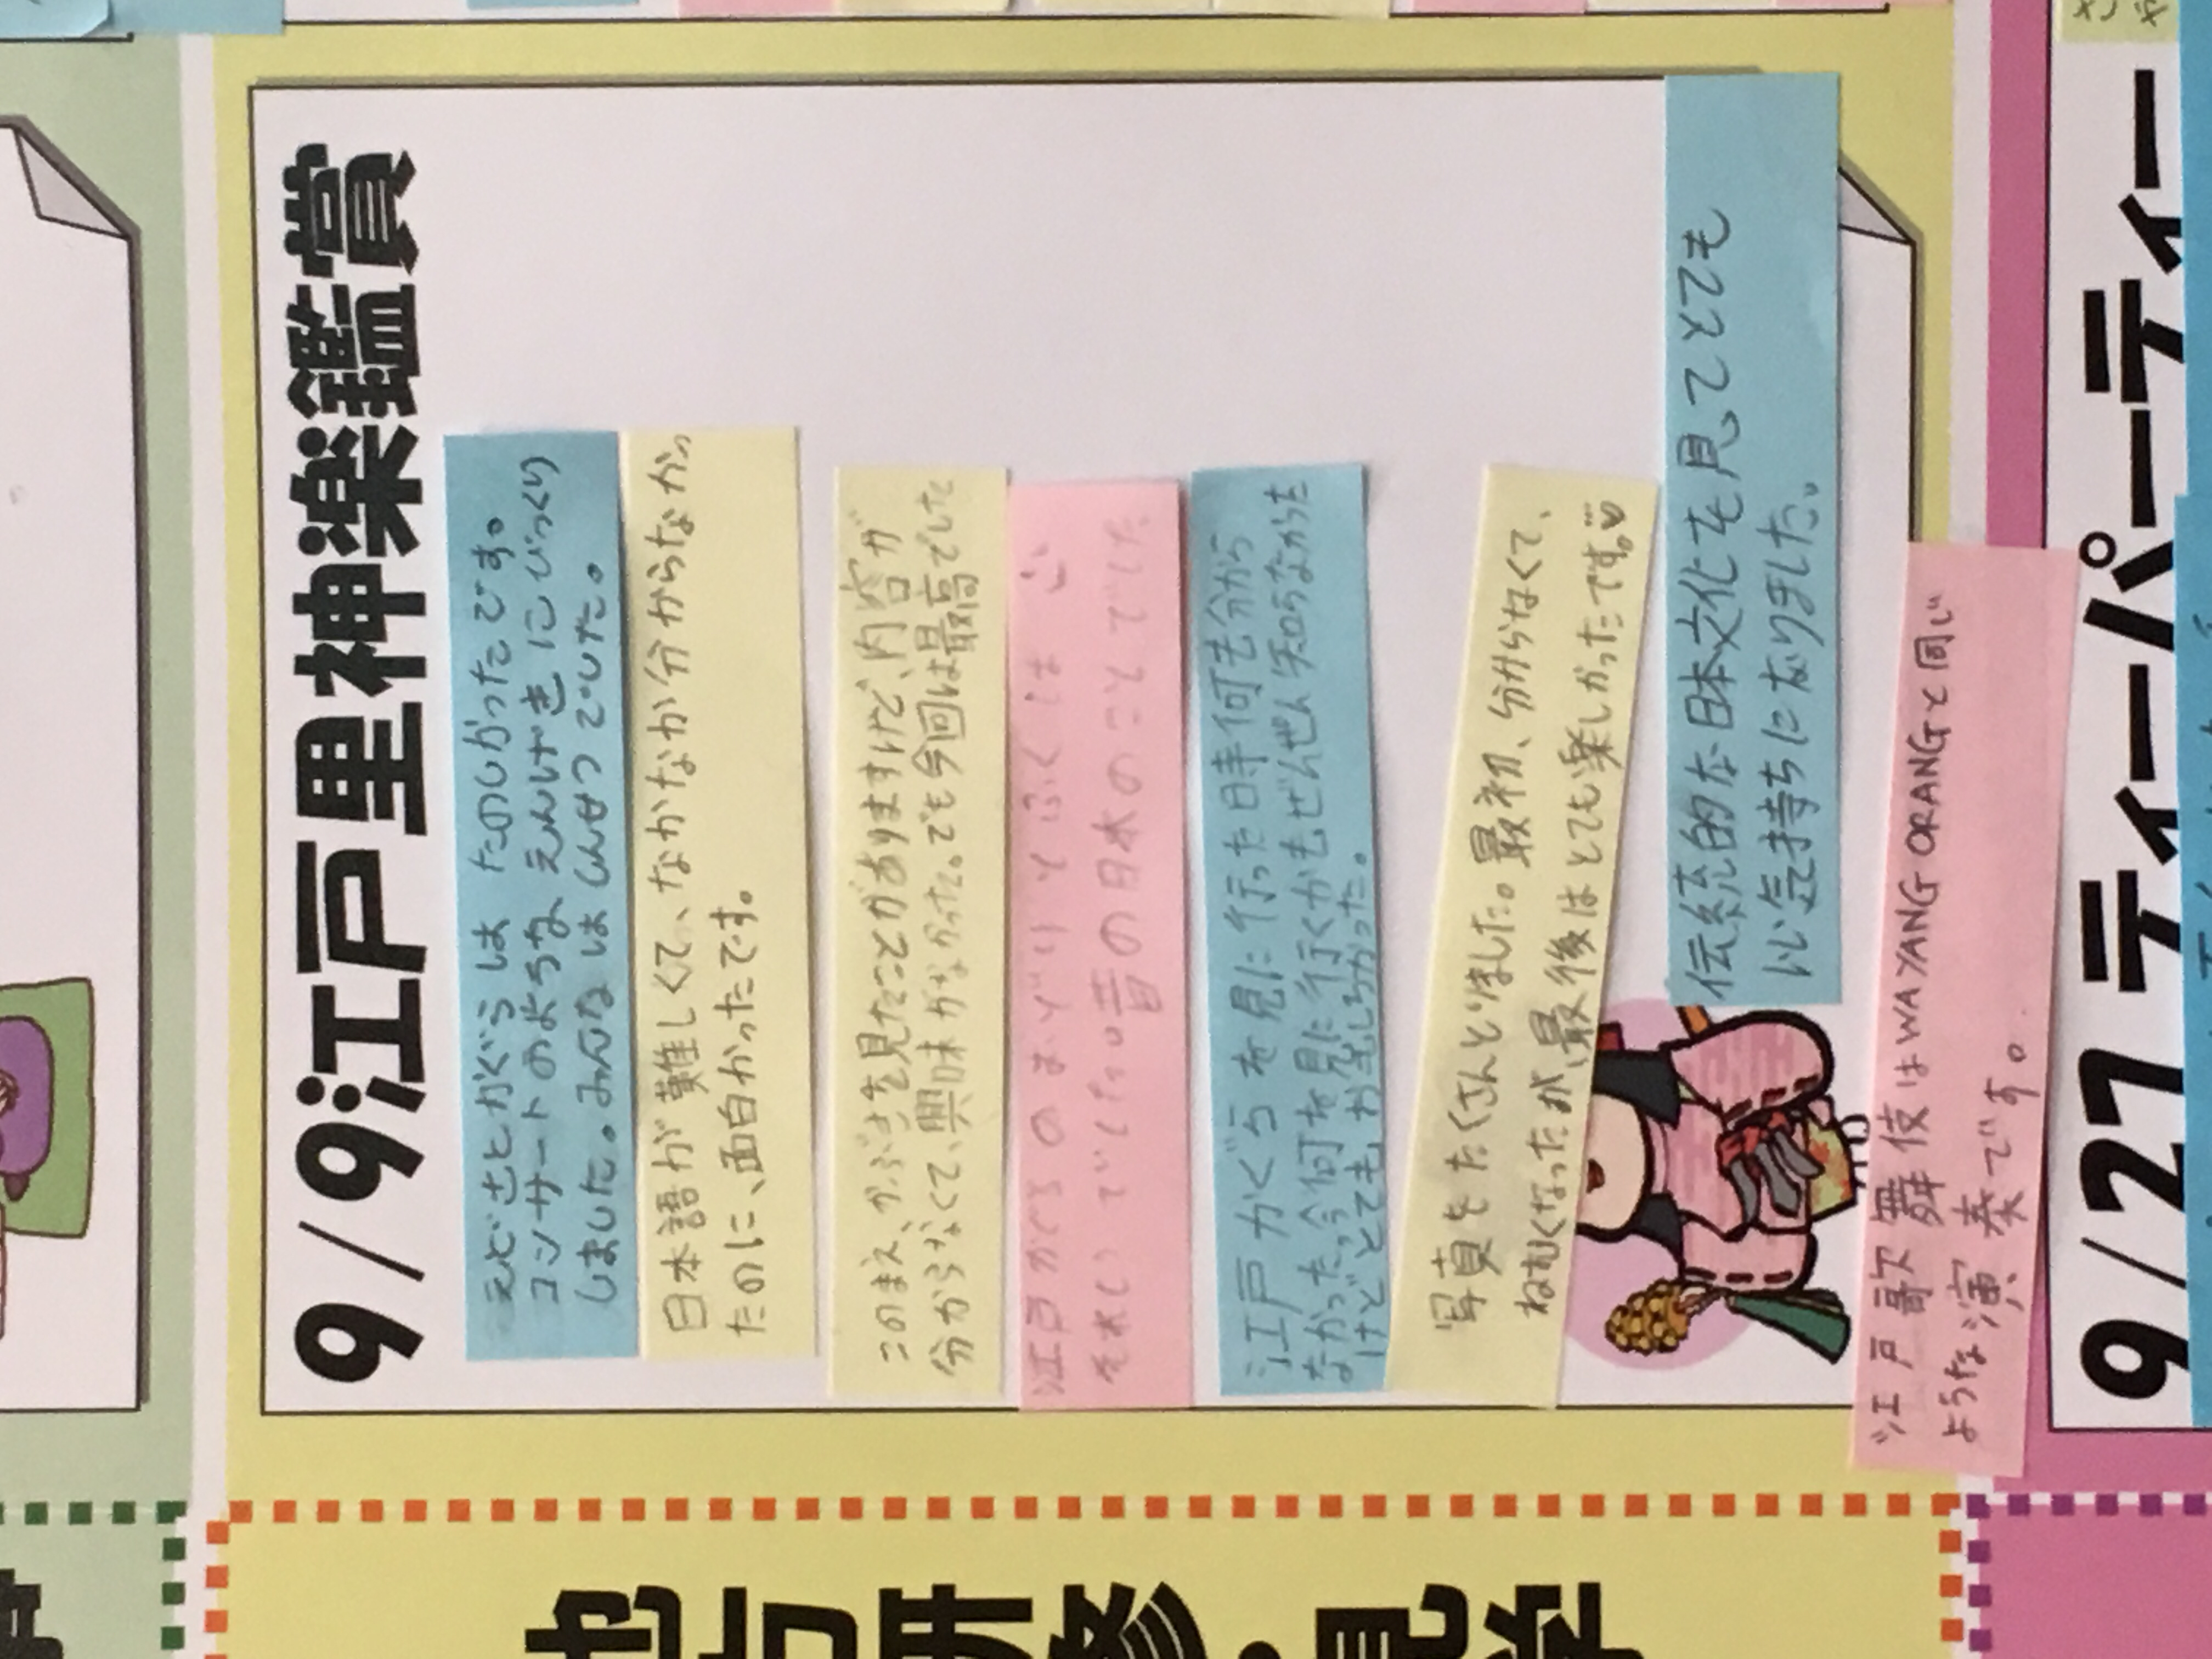 9/9江戸里神楽鑑賞
えどさとかぐらは たのしかったです。
コンサートのような えんげきに びっくり
しました。みんなは しんせつでした。
日本語が難しくて、なかなか分からなかっ
たのに、面白かったです。
このまえ、かぶきを見たことがありますけど、内容が
分からなくて、興味がなかった。でも今回は最高でした
江戸かぐらの
それい でした。昔の日本のことでした
江戸かぐらを見に行った時何も分から
なかった。今何を見に行くかもぜんぜん知らなかった
けどとてもおもしろかった。
写真をたくさんとりました。最初、分からなくて、
ねむくなったが、最後はとても楽しかったです。
伝統的な日本文化を見てとても
いい気持ちになりました。
江戸歌舞伎はWAYANG ORANGと同じ
ような演奏です。
9/27 ティーパーティー
地方研修・見学